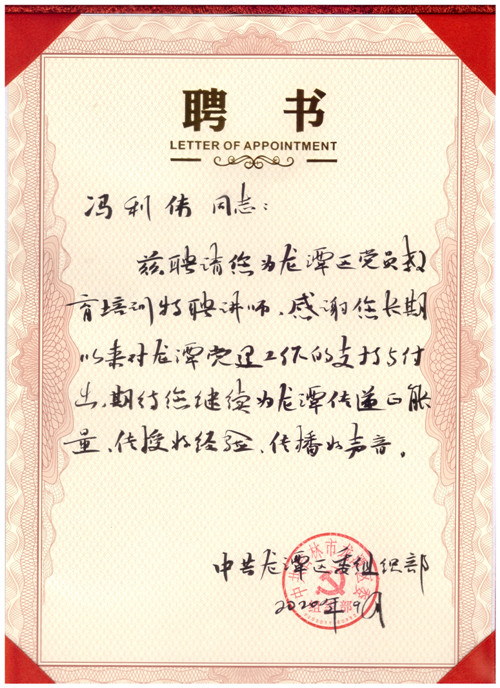 聘书
LETTER OF APPOINTMENT
冯利伟 同志：
兹聘请您为龙潭区党员教
育培训特聘讲师。感谢您长期
以来对龙潭党建工作的支持与付
出，期待您继续为龙潭传递正能
量、传授好经验、传播好声音。
中共龙潭区委组织部
2020年9月